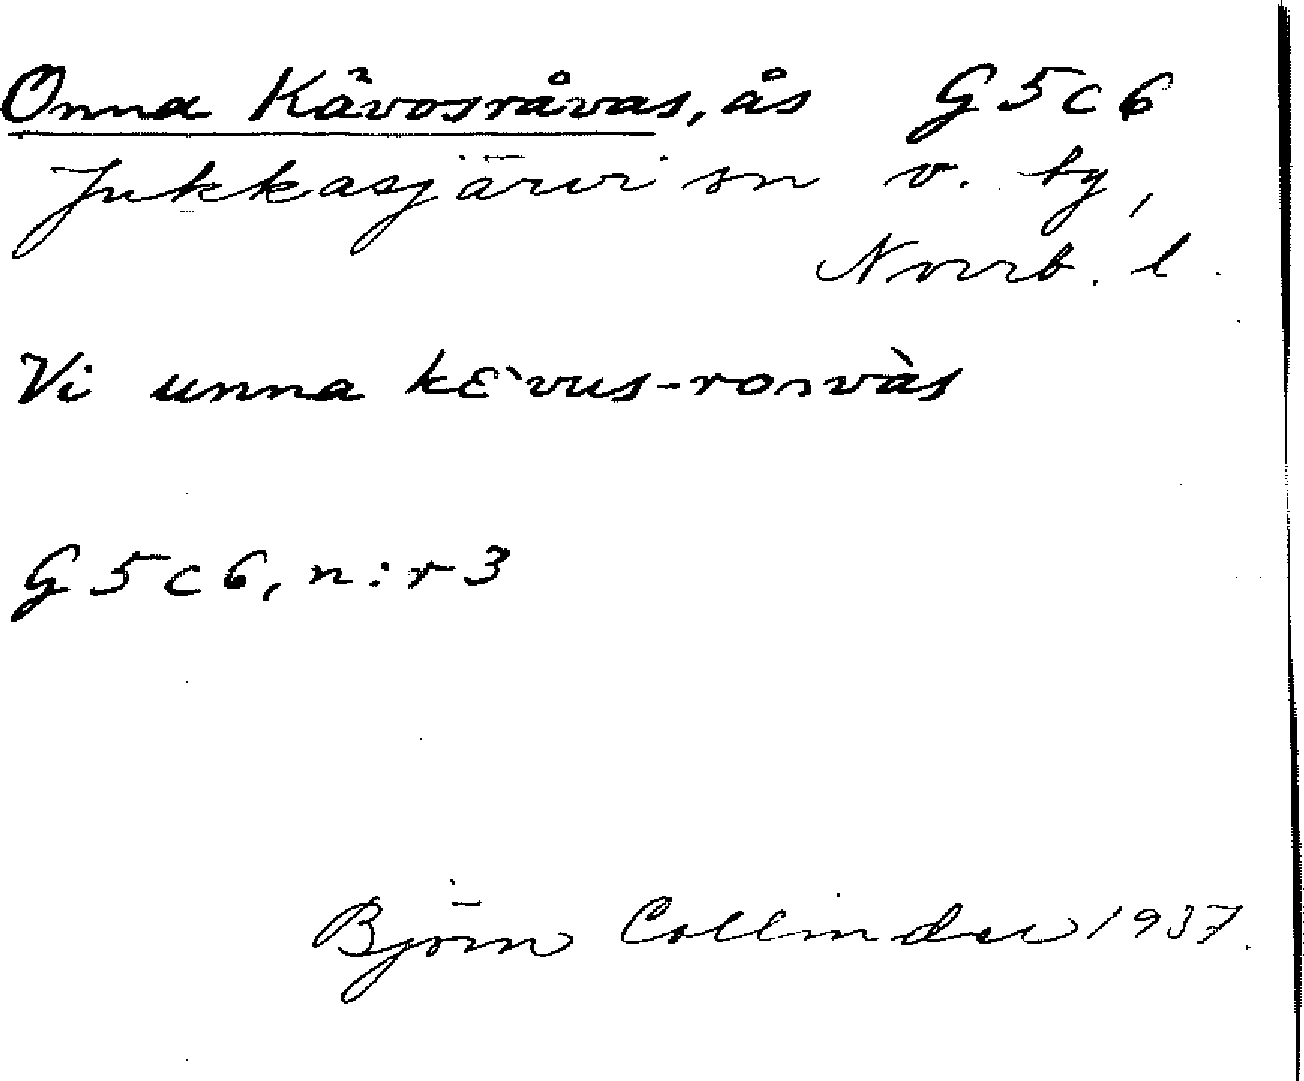 Onna Kåvosråvas, ås G5c6
Jukkasjärvi sn v. by,
Norrb. l.
Vi unna kɛ`vus-roavàs
G5c6, n:r 3
Björn Collinder 1937.